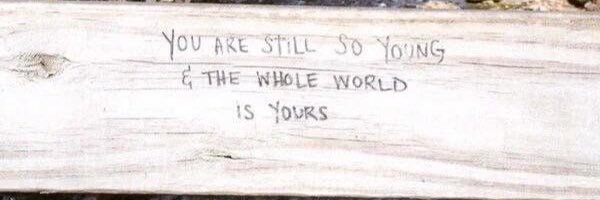 YOU ARE STILL SO YOUNG
& THE WHOLE WORLD
IS YOURS